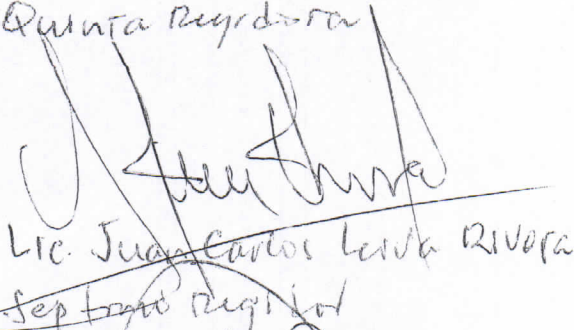 Quinta Regidora
Lic. Juan Carlos Leiva Rivera
Septimo Regidor